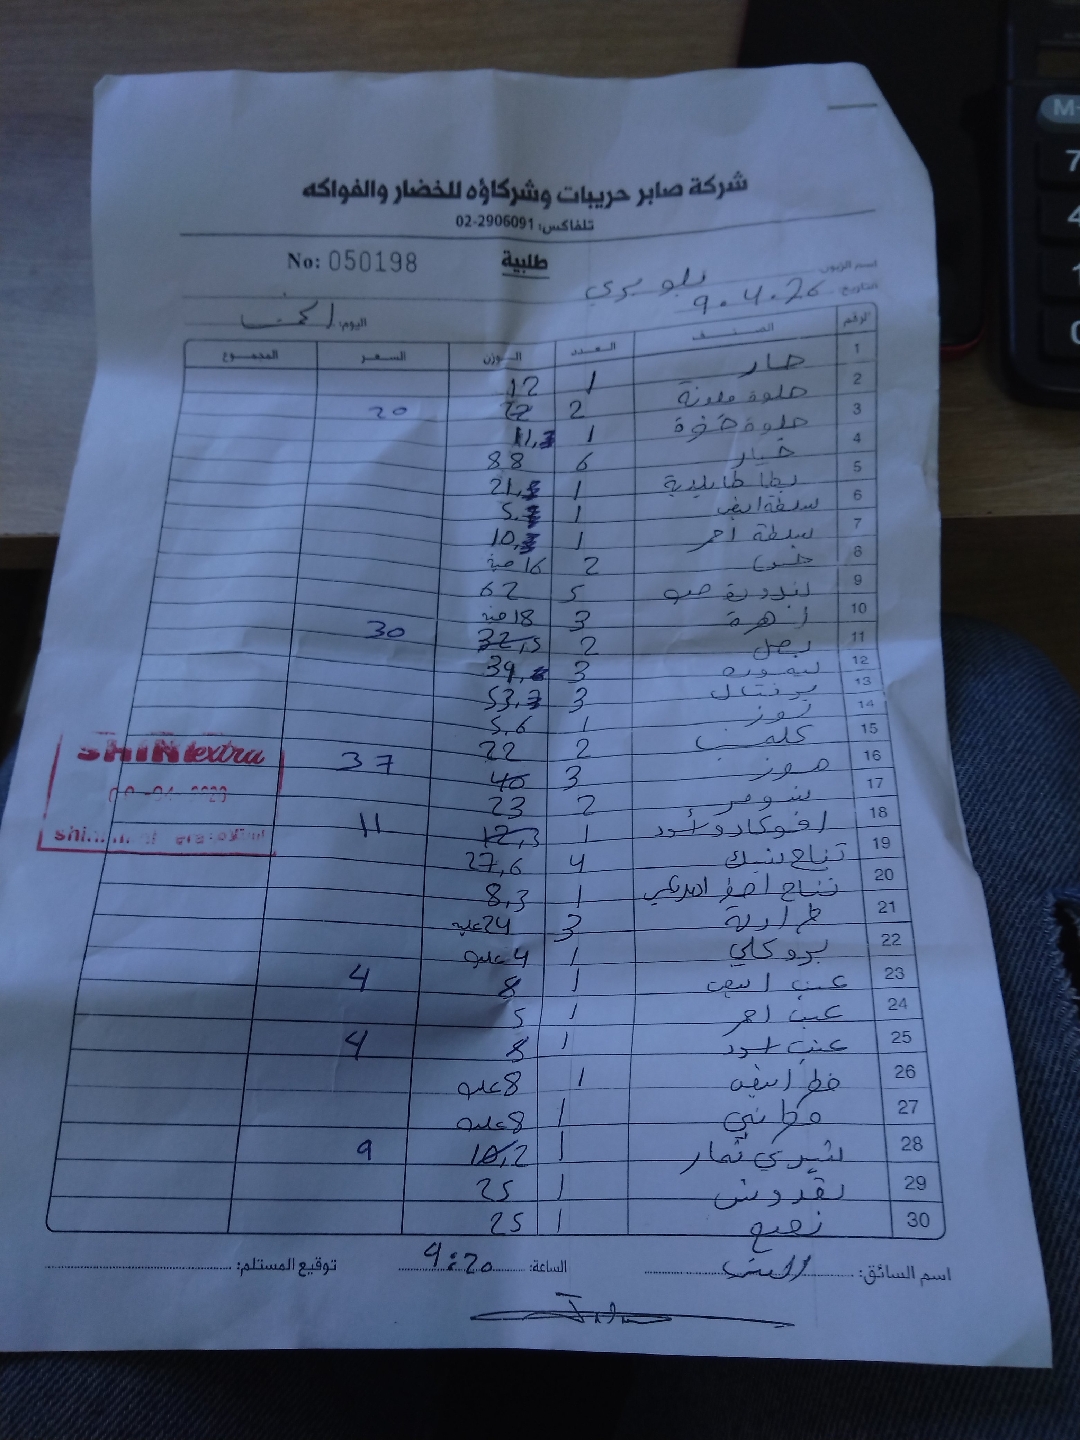 شركة صابر حريبات وشركاؤه للخضار والفواكه
تلفاكس: 02-2906091
No: 050198 طلبية
اسم الزبون: بلو بيري
التاريخ: 9.4.26
اليوم:
الرقم الصنف العدد الوزن السعر المجموع
1 حار 1 12
2 حلوة ملونة 2 22 20
3 حلوة 1 11,
4 خيار 6 88
5 بطاطا 1 21,
6 سلطة ابيض 1 5,
7 سلطة احمر 1 10,
8 2 16
9 بندورة 5 62
10 زهرة 3 18
11 بصل 2 32,5 30
12 ليمون 3 39,
13 برتقال 3 53,
14 لوز 1 5,6
15 كلمنتينا 2 22
16 موز 3 40 37
17 شومر 2 23
18 افوكادو أسود 1 12,3 11
19 تفاح 4 27,6
20 تفاح اصفر امريكي 1 8,3
21 فراولة 3 24 علبه
22 بروكلي 1 4 علبه
23 عنب ابيض 1 8 4
24 عنب احمر 1 5
25 عنب اسود 1 8 4
26 فطر ابيض 1 8 علبه
27 1 8 علبه
28 شيري 1 10,2 9
29 بقدونس 1 25
30 نعنع 1 25
اسم السائق: الساعة: 9:20 توقيع المستلم:
SHINI extra